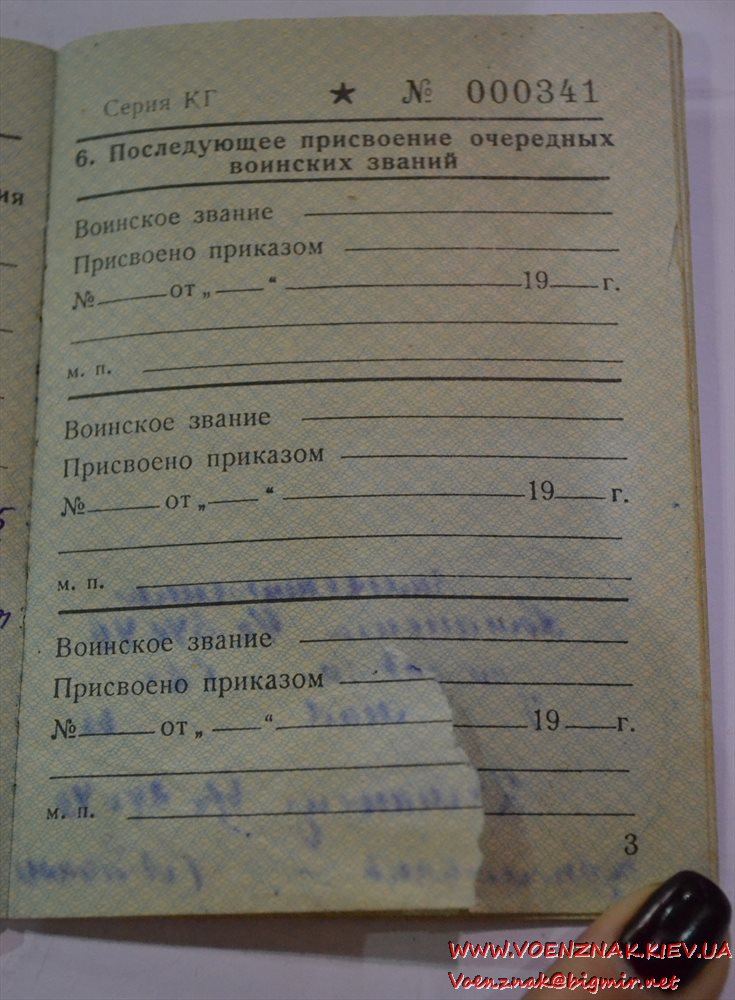 Серия КГ ★ № 000341
6. Последующее присвоение очередных
воинских званий
Воинское звание
Присвоено приказом
№ от „ “ 19 г.
м. п.
Воинское звание
Присвоено приказом
№ от „ “ 19 г.
м. п.
Воинское звание
Присвоено приказом
№ от „ “ 19 г.
м. п.
3
WWW.VOENZNAK.KIEV.UA
Voenznak@bigmir.net